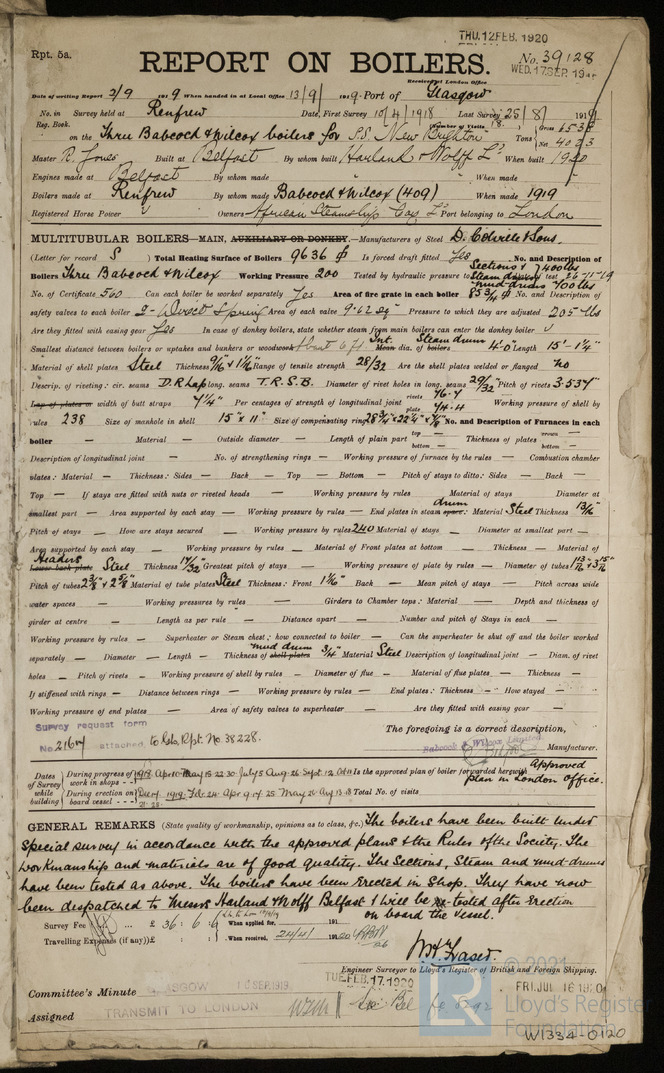 THU. 12 FEB. 1920
Rpt. 5a.
REPORT ON BOILERS.
No. 39128
Received at London Office WED. 17 SEP. 19
Date of writing Report 2/9 1919 When handed in at Local Office 13/9/ 1919. Port of Glasgow
No. in Survey held at Renfrew Date, First Survey 10/4/1918 Last Survey 25/8/ 1919
Reg. Book. (Number of Visits 18.)
on the Three Babcock & Wilcox boilers for S.S. New Brighton Tons Gross 6538 Net 4023
Master R. Jones Built at Belfast By whom built Harland & Wolff Ld When built 1920
Engines made at Belfast By whom made " " When made
Boilers made at Renfrew By whom made Babcock & Wilcox (409) When made 1919
Registered Horse Power Owners African Steamship Coy Ld Port belonging to London
MULTITUBULAR BOILERS—MAIN, AUXILIARY OR DONKEY.—Manufacturers of Steel D. Colville & Sons.
(Letter for record S) Total Heating Surface of Boilers 9636 Is forced draft fitted Yes No. and Description of
Boilers Three Babcock & Wilcox Working Pressure 200 Tested by hydraulic pressure to Sections & Steam drums 400 lbs mud drums 700 lbs Date of test 26-11-19
No. of Certificate 560 Can each boiler be worked separately Yes Area of fire grate in each boiler 85 3/4 No. and Description of
safety valves to each boiler 2- Direct Spring Area of each valve 9.62 sq" Pressure to which they are adjusted 205 lbs
Are they fitted with easing gear Yes In case of donkey boilers, state whether steam from main boilers can enter the donkey boiler
Smallest distance between boilers or uptakes and bunkers or woodwork About 6 ft. Int. Mean dia. of boilers Steam drum 4'-0" Length 15'-1 1/4"
Material of shell plates Steel Thickness 9/16" & 1 1/16" Range of tensile strength 28/32 Are the shell plates welded or flanged no
Descrip. of riveting: cir. seams D.R. Lap long. seams T.R.S.B. Diameter of rivet holes in long. seams 29/32" Pitch of rivets 3.537"
Lap of plates or width of butt straps 7 1/4" Per centages of strength of longitudinal joint rivets 76.7 plate 74.4 Working pressure of shell by
rules 238 Size of manhole in shell 15" x 11" Size of compensating ring 28 3/4" x 22 1/4" x 7/8" No. and Description of Furnaces in each
boiler — Material — Outside diameter — Length of plain part top — bottom — Thickness of plates crown — bottom —
Description of longitudinal joint — No. of strengthening rings — Working pressure of furnace by the rules — Combustion chamber
plates: Material — Thickness: Sides — Back — Top — Bottom — Pitch of stays to ditto: Sides — Back —
Top — If stays are fitted with nuts or riveted heads — Working pressure by rules — Material of stays — Diameter at
smallest part — Area supported by each stay — Working pressure by rules — End plates in steam drum space: Material Steel Thickness 13/16"
Pitch of stays — How are stays secured — Working pressure by rules 240 Material of stays — Diameter at smallest part —
Area supported by each stay — Working pressure by rules — Material of Front plates at bottom — Thickness — Material of
Headers Lower back plate Steel Thickness 17/32" Greatest pitch of stays — Working pressure of plate by rules — Diameter of tubes 1 13/16" & 3 15/16"
Pitch of tubes 2 3/8" & 2 5/8" Material of tube plates Steel Thickness: Front 1 1/16" Back — Mean pitch of stays — Pitch across wide
water spaces — Working pressures by rules — Girders to Chamber tops: Material — Depth and thickness of
girder at centre — Length as per rule — Distance apart — Number and pitch of Stays in each —
Working pressure by rules — Superheater or Steam chest; how connected to boiler — Can the superheater be shut off and the boiler worked
separately — Diameter — Length — Thickness of mud drum shell plates 3/4" Material Steel Description of longitudinal joint — Diam. of rivet
holes — Pitch of rivets — Working pressure of shell by rules — Diameter of flue — Material of flue plates — Thickness —
If stiffened with rings — Distance between rings — Working pressure by rules — End plates: Thickness — How stayed —
Working pressure of end plates — Area of safety valves to superheater — Are they fitted with easing gear —
Survey request form
No. 2164 attached to Gls. Rpt. No. 38228.
The foregoing is a correct description,
Babcock & Wilcox Limited Manufacturer.
Dates of Survey while building
During progress of work in shops - - 1918. Apr 10 May 15 22 30 July 5 Aug 26 Sept 12 Oct 11 Is the approved plan of boiler forwarded herewith Approved plan in London office.
During erection on board vessel - - - Dec 4 1919 Feb 24 Apr 9 14 25 May 26 Aug 13 18 21 25. Total No. of visits
GENERAL REMARKS (State quality of workmanship, opinions as to class, &c.) The boilers have been built under
special survey in accordance with the approved plans & the Rules of the Society. The
workmanship and materials are of good quality. The Sections, Steam and mud-drums
have been tested as above. The boilers have been Erected in Shop. They have now
been despatched to Messrs Harland & Wolff Belfast & will be re-tested after Erection
on board the vessel.
Survey Fee £ 36 : 6 : 6 When applied for, 191
Travelling Expenses (if any) £ : : When received, 24/4/ 1920
W. H. Fraser.
Engineer Surveyor to Lloyd's Register of British and Foreign Shipping.
Committee's Minute GLASGOW 16 SEP. 1919 TUE. FEB. 17. 1920 FRI. JUL 16 1920
Assigned TRANSMIT TO LONDON
© 2021
LR
Lloyd's Register
Foundation
W1334-0120